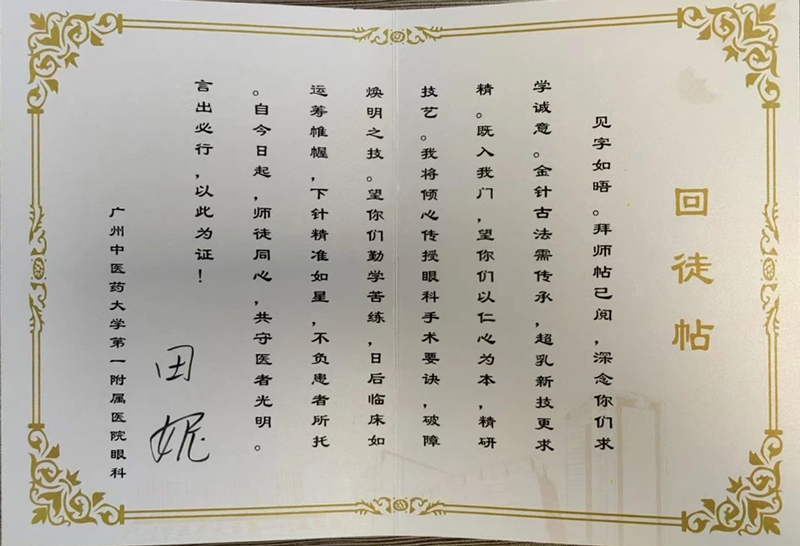 回徒帖
见字如晤。拜师帖已阅，深念你们求
学诚意。金针古法需传承，超乳新技更求
精。既入我门，望你们以仁心为本，精研
技艺。我将倾心传授眼科手术要诀，破障
焕明之技。望你们勤学苦练，日后临床如
运筹帷幄，下针精准如星，不负患者所托
。自今日起，师徒同心，共守医者光明。
言出必行，以此为证！
田妮
广州中医药大学第一附属医院眼科